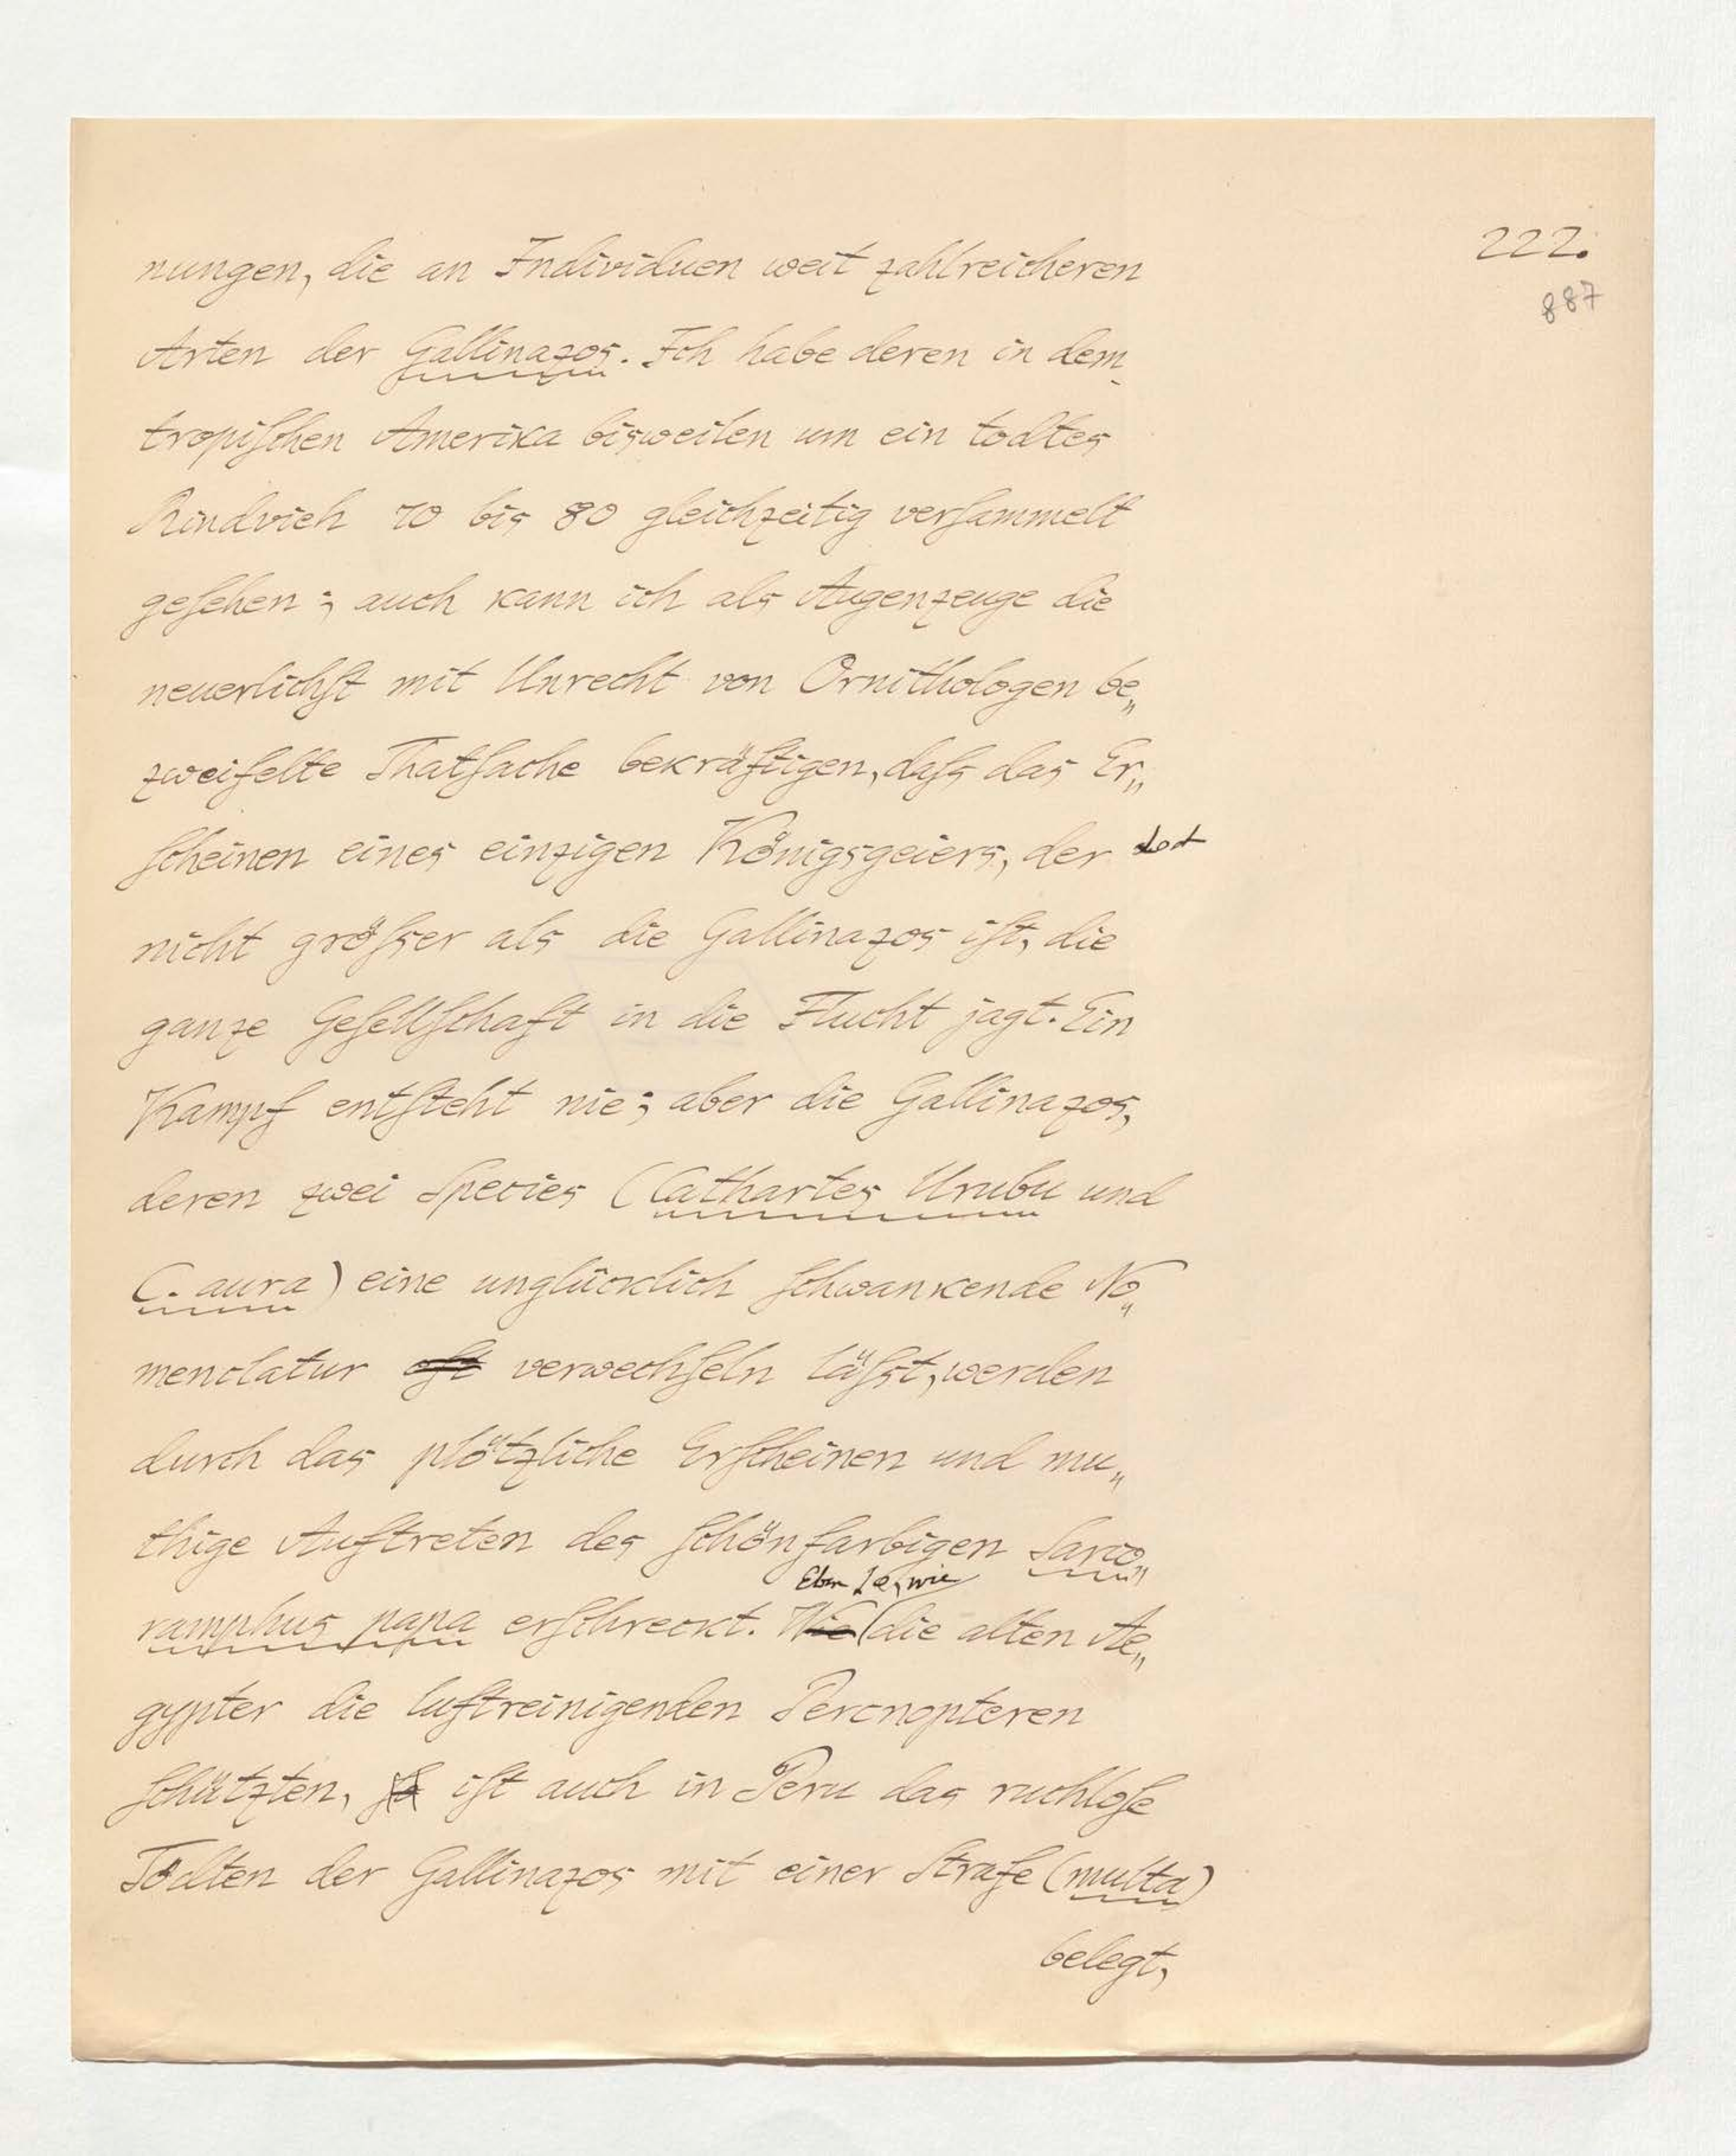 222.
887
nungen, die an Individuen weit zahlreicheren
Arten der Gallinazos. Ich habe deren in dem
tropiſchen Amerika bisweilen um ein todtes
Rindvieh 70 bis 80 gleichzeitig verſammelt
geſehen; auch kann ich als Augenzeuge die
neuerlichſt mit Unrecht von Ornithologen be„
zweifelte Thatſache bekräftigen, daſs das Er„
ſcheinen eines einzigen Königsgeiers, der doch
nicht gröſser als die Gallinazos iſt, die
ganze Geſellſchaft in die Flucht jagt. Ein
Kampf entſteht nie; aber die Gallinazos,
deren zwei Species (Cathartes Urubu und
C. aura) eine unglücklich ſchwankende No„
menclatur oft verwechſeln läſst, werden
durch das plötzliche Erſcheinen und mu„
thige Auftreten des ſchönfarbigen Sarco„
Eben so, wie
ramphus papa erſchreckt. Wie die alten Ae„
gypter die luftreinigenden Percnopteren
ſchützten, ſo iſt auch in Peru das ruchloſe
Tödten der Gallinazos mit einer Strafe (multa)
belegt,